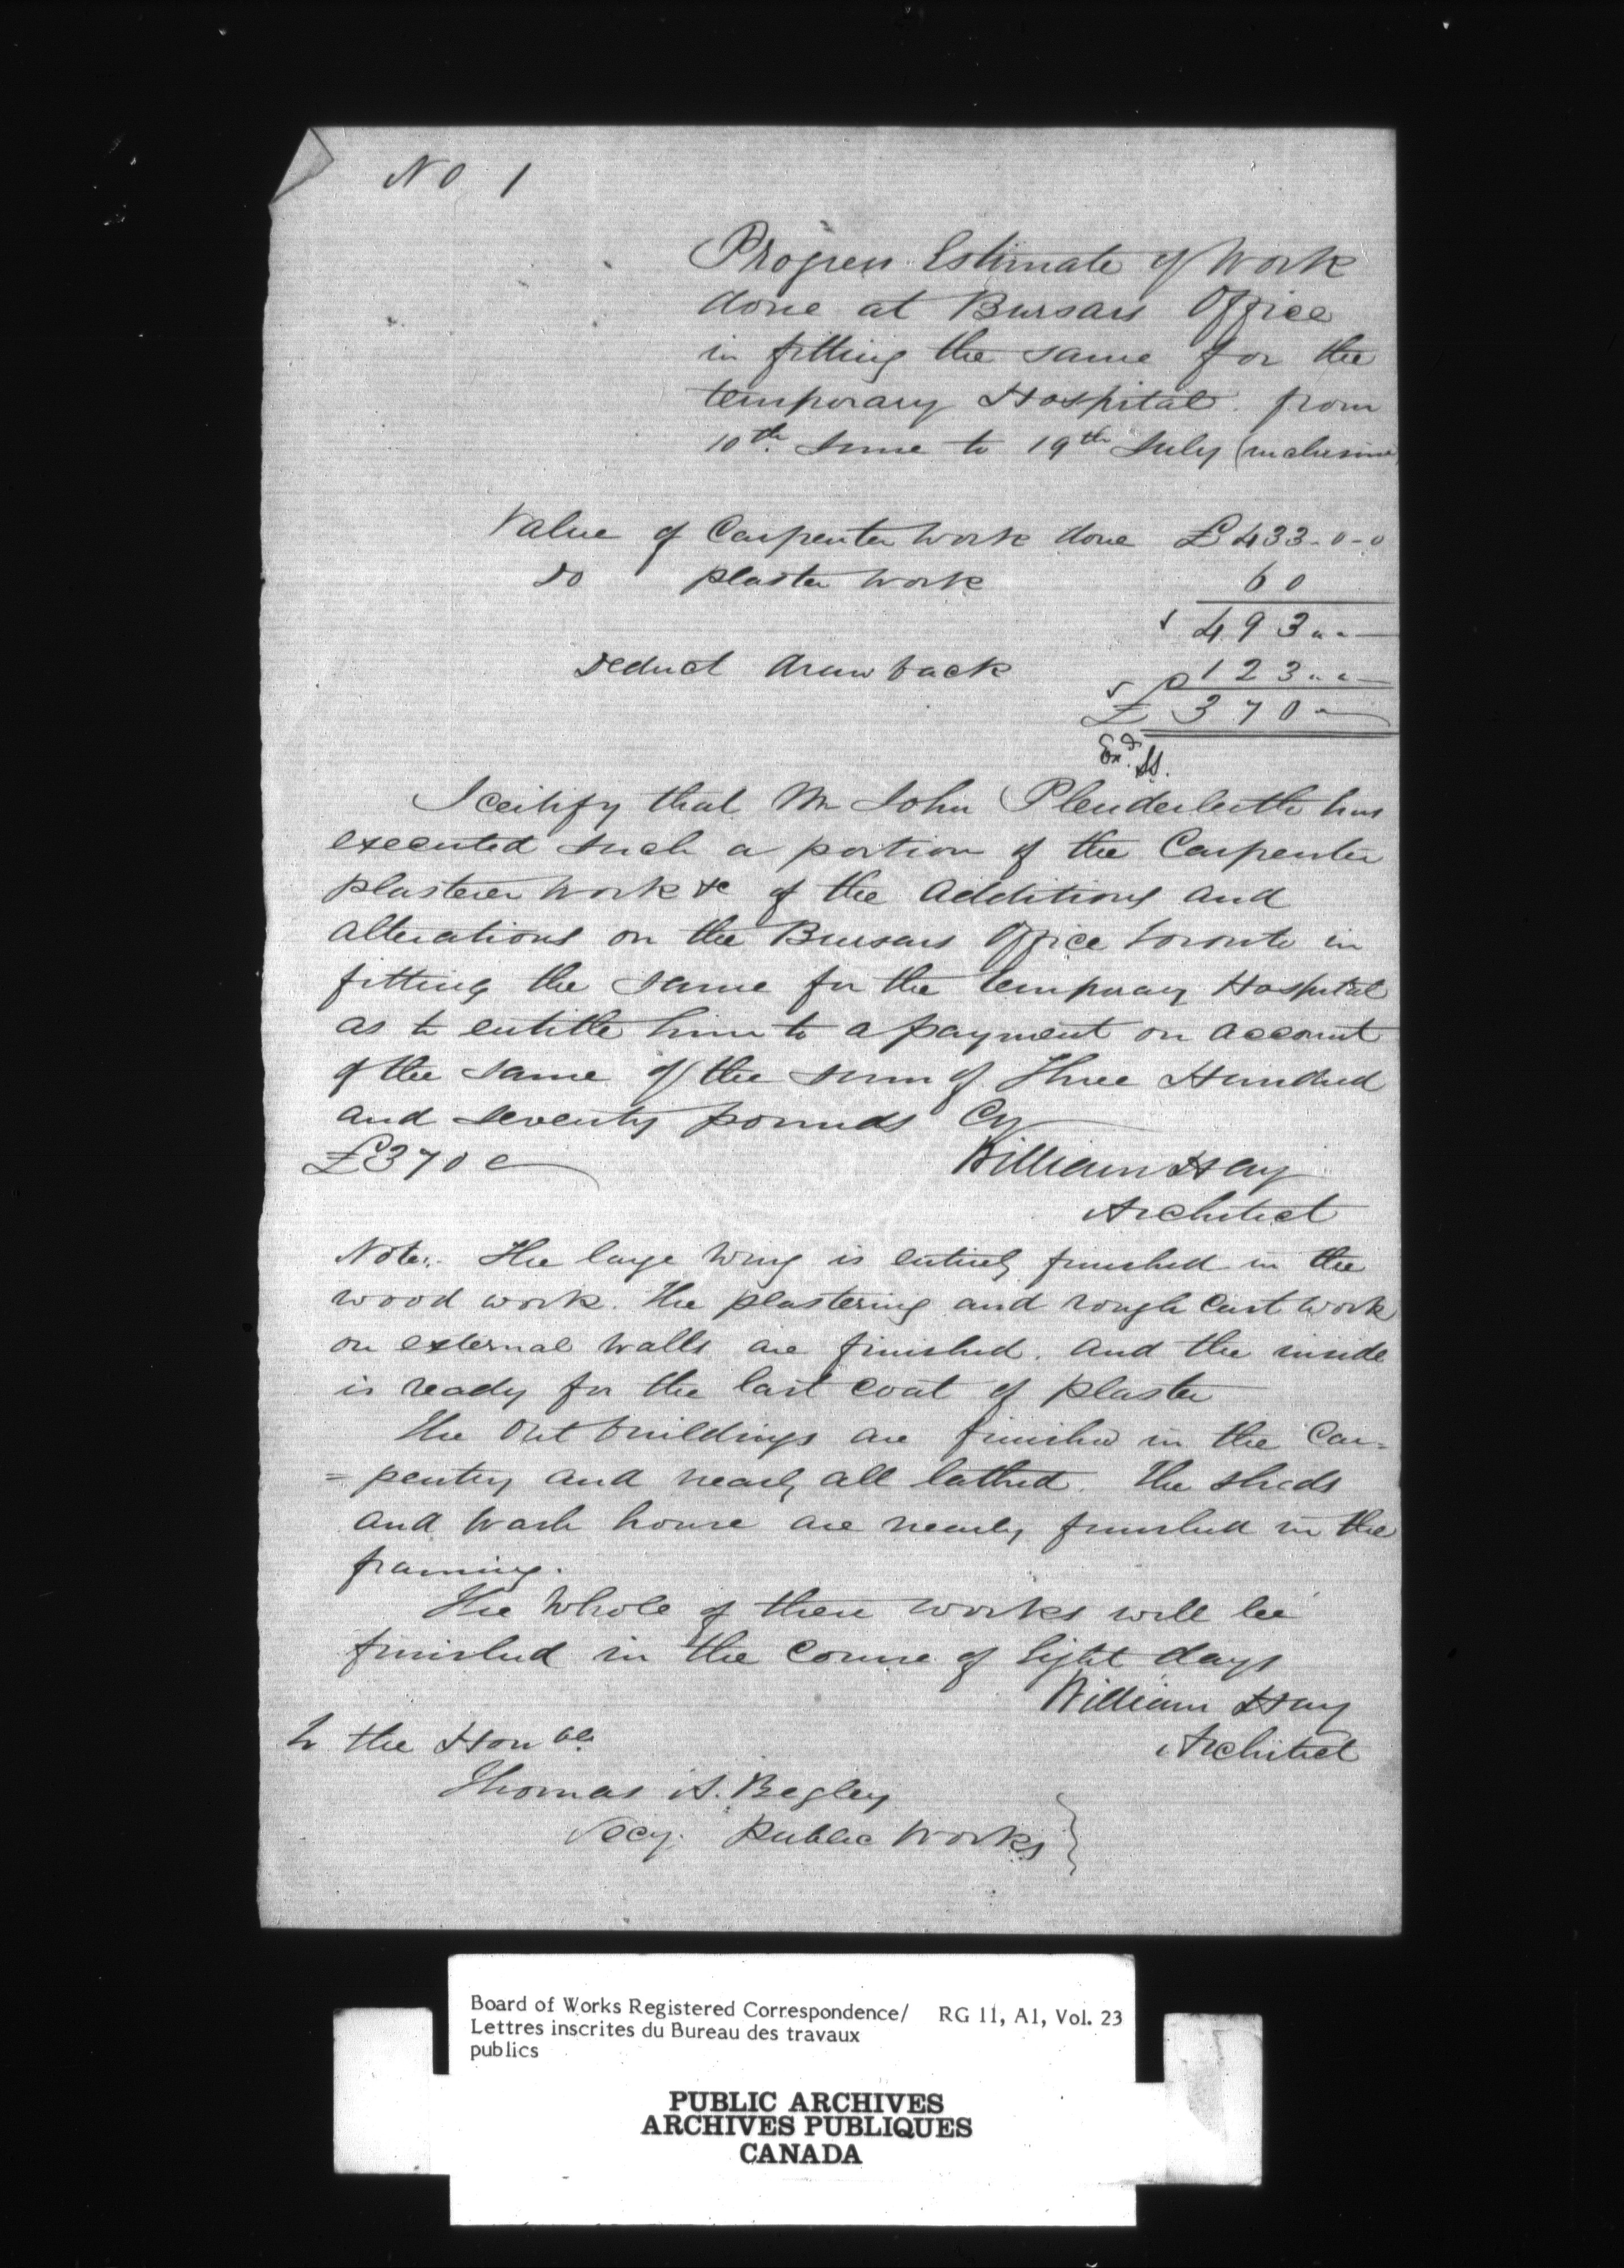 No 1
Progress Estimate of Work
done at Bursars Office
in fitting the same for the
temporary Hospital from
10th June to 19th July (inclusive
Value of Carpenter work done £433-0-0
Do plaster work 60
493 " " —
Deduct drawback 123 " " —
£370 " —
Exd.
I certify that Mr John Plenderleith has
executed such a portion of the Carpenter
plasterer work &c of the additions and
alterations on the Bursars Office Toronto in
fitting the same for the temporary Hospital
as to entitle him to a payment on account
of the same of the sum of Three Hundred
and seventy pounds Cy
£370 c
William Hay
Architect
Note:. The large wing is entirely finished in the
wood work. The plastering and rough cast work
on external walls are finished. and the inside
is ready for the last coat of plaster
The Out buildings are finished in the Car=
=pentry and nearly all lathed. The sheds
and Wash house are nearly finished in the
framing.
The Whole of these works will be
finished in the course of Eight days
William Hay
Architect
To the Honble
Thomas A. Begley
Secy. Public Works
Board of Works Registered Correspondence/ RG 11, A1, Vol. 23
Lettres inscrites du Bureau des travaux
publics
PUBLIC ARCHIVES
ARCHIVES PUBLIQUES
CANADA